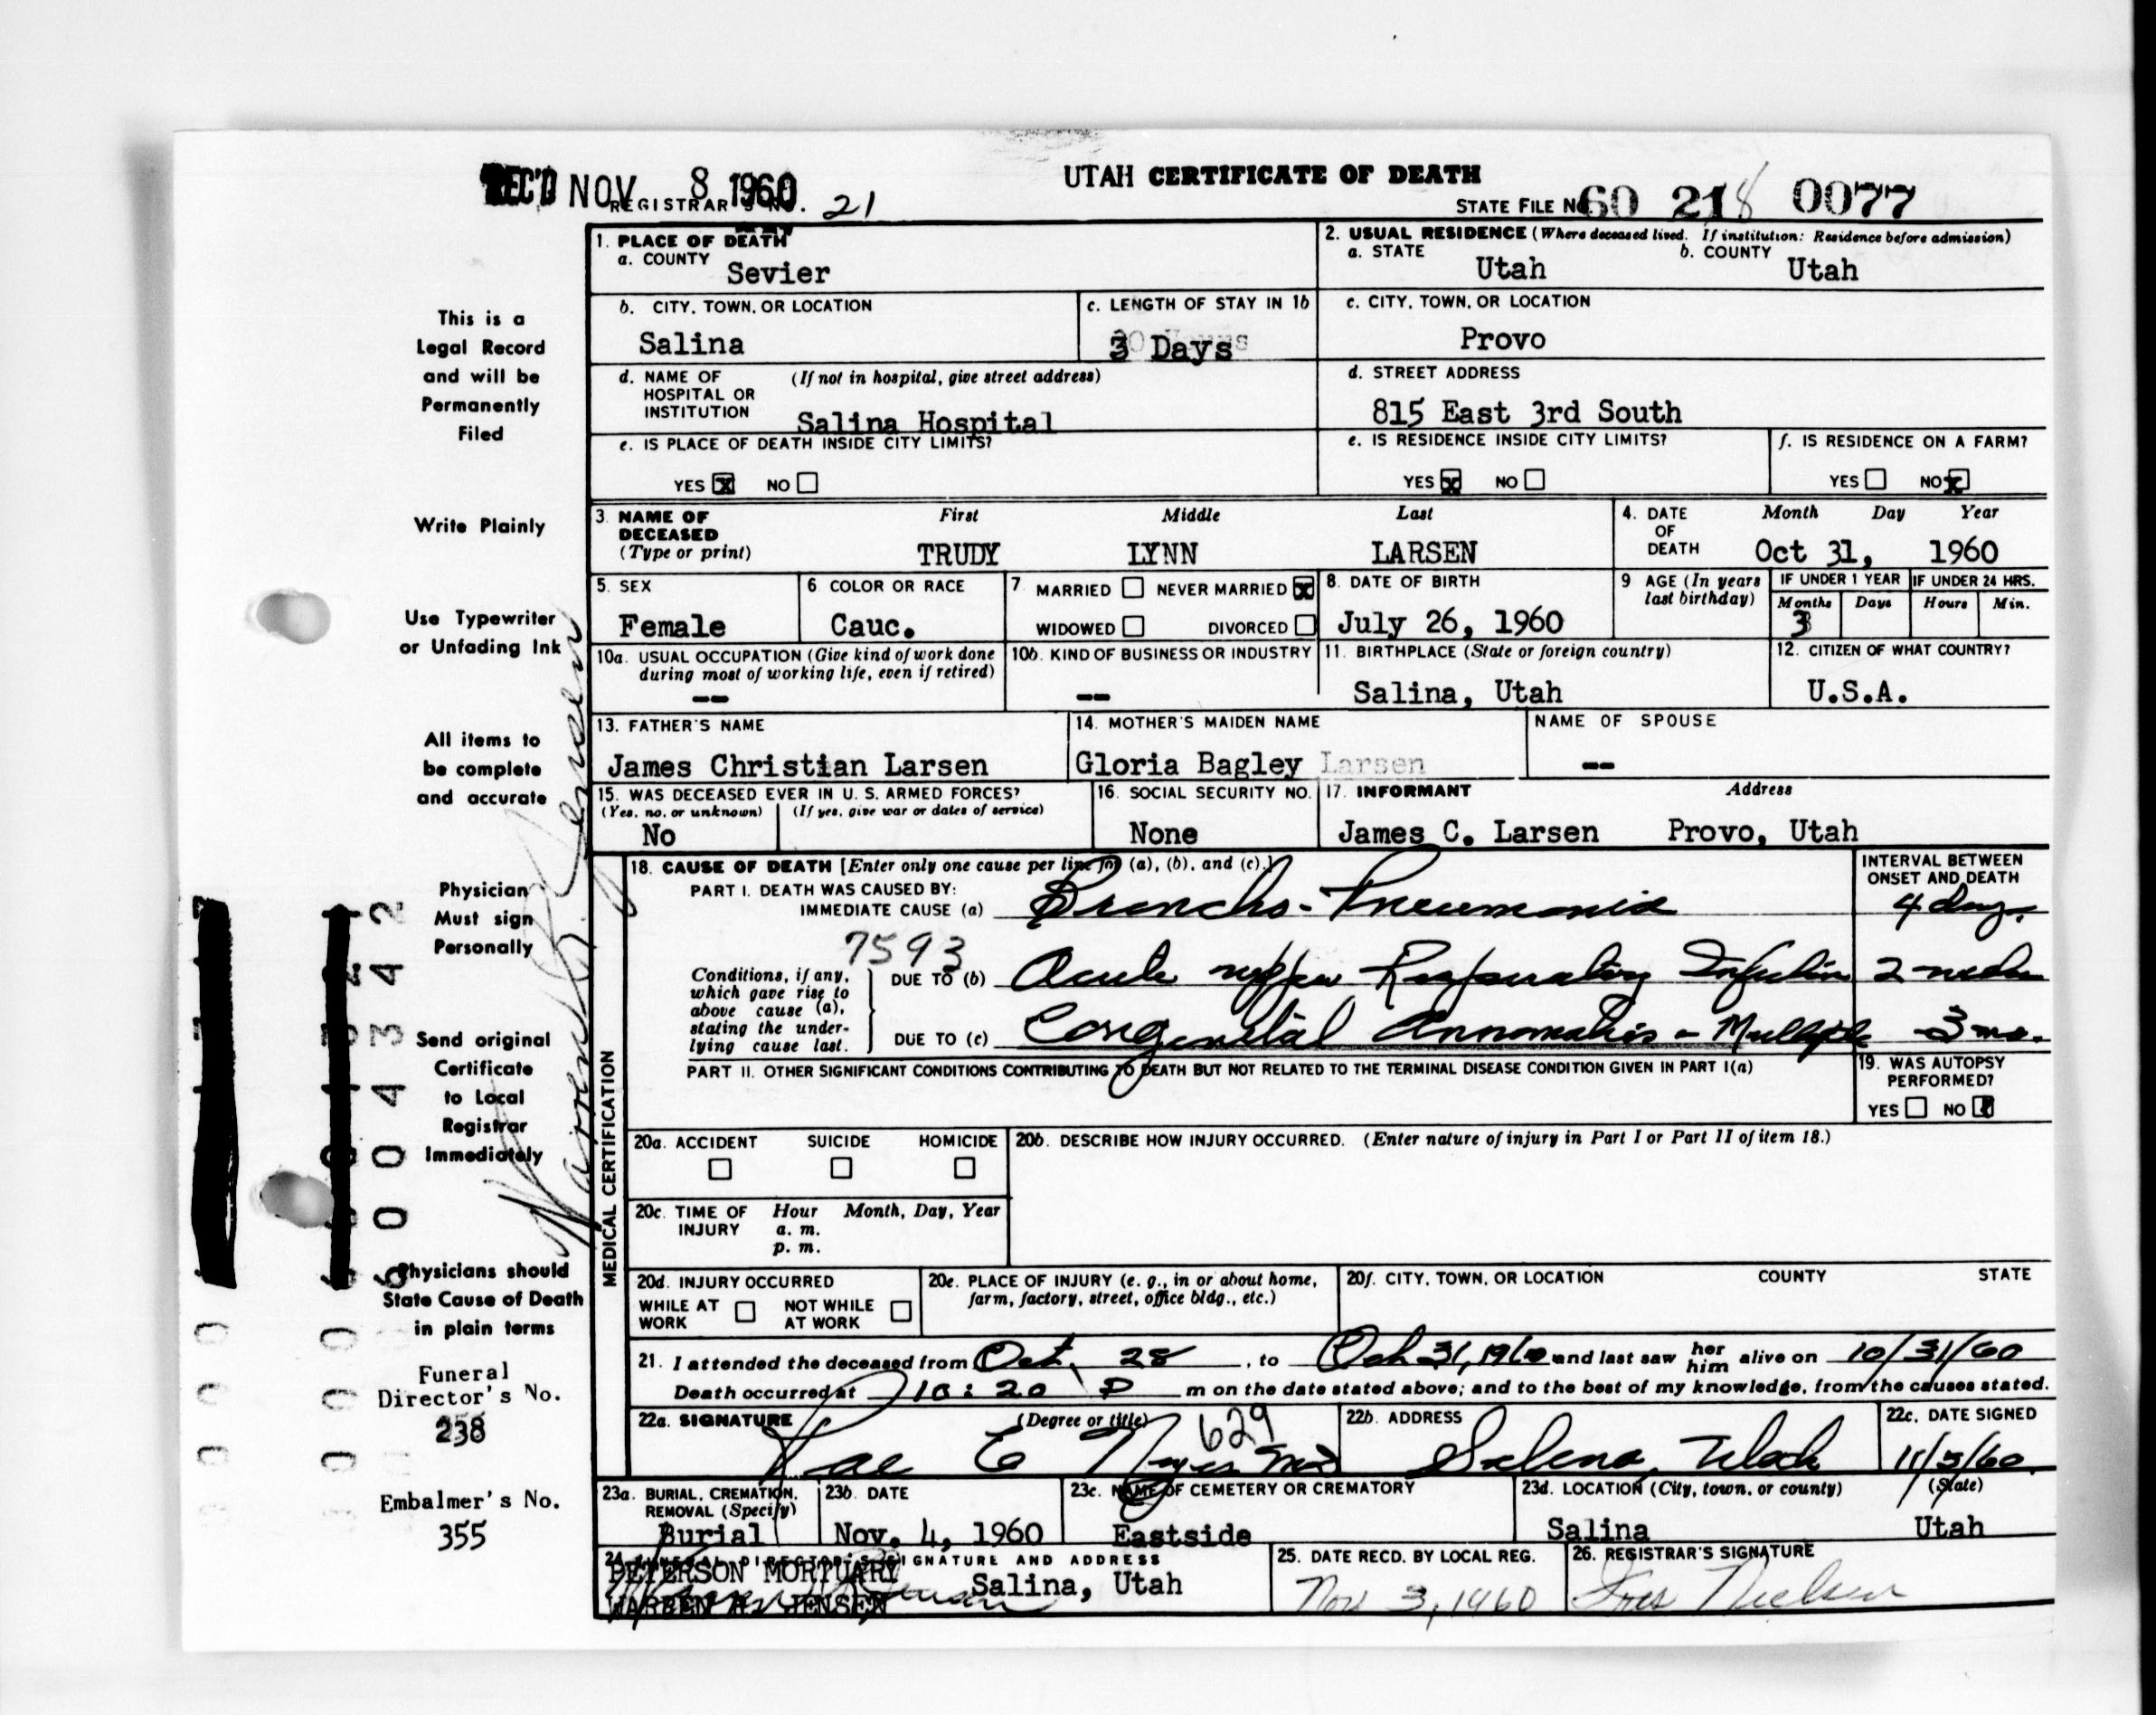 REC'D NOV 8 1960
REGISTRAR'S NO. 21
UTAH CERTIFICATE OF DEATH
STATE FILE NO. 60 218 0077
This is a
Legal Record
and will be
Permanently
Filed
Write Plainly
Use Typewriter
or Unfading Ink
All items to
be complete
and accurate
Physician
Must sign
Personally
Send original
Certificate
to Local
Registrar
Immediately
Physicians should
State Cause of Death
in plain terms
Funeral
Director's No.
238
Embalmer's No.
355
1. PLACE OF DEATH
a. COUNTY
Sevier
2. USUAL RESIDENCE (Where deceased lived. If institution: Residence before admission)
a. STATE Utah b. COUNTY Utah
b. CITY, TOWN, OR LOCATION
Salina
c. LENGTH OF STAY IN 1b
3 Days
c. CITY, TOWN, OR LOCATION
Provo
d. NAME OF (If not in hospital, give street address)
HOSPITAL OR
INSTITUTION Salina Hospital
d. STREET ADDRESS
815 East 3rd South
e. IS PLACE OF DEATH INSIDE CITY LIMITS?
YES X NO
e. IS RESIDENCE INSIDE CITY LIMITS?
YES X NO
f. IS RESIDENCE ON A FARM?
YES NO X
3. NAME OF First Middle Last
DECEASED
(Type or print) TRUDY LYNN LARSEN
4. DATE Month Day Year
OF
DEATH Oct 31, 1960
5. SEX
Female
6 COLOR OR RACE
Cauc.
7 MARRIED NEVER MARRIED X
WIDOWED DIVORCED
8. DATE OF BIRTH
July 26, 1960
9 AGE (In years
last birthday)
IF UNDER 1 YEAR IF UNDER 24 HRS.
Months Days Hours Min.
3
10a. USUAL OCCUPATION (Give kind of work done
during most of working life, even if retired)
--
10b. KIND OF BUSINESS OR INDUSTRY
--
11. BIRTHPLACE (State or foreign country)
Salina, Utah
12. CITIZEN OF WHAT COUNTRY?
U.S.A.
13. FATHER'S NAME
James Christian Larsen
14. MOTHER'S MAIDEN NAME
Gloria Bagley Larsen
NAME OF SPOUSE
--
15. WAS DECEASED EVER IN U. S. ARMED FORCES?
(Yes, no, or unknown) (If yes, give war or dates of service)
No
16. SOCIAL SECURITY NO.
None
17. INFORMANT Address
James C. Larsen Provo, Utah
MEDICAL CERTIFICATION
18. CAUSE OF DEATH [Enter only one cause per line for (a), (b), and (c).]
PART I. DEATH WAS CAUSED BY:
IMMEDIATE CAUSE (a) Broncho-Pneumonia
INTERVAL BETWEEN
ONSET AND DEATH
4 days
7593
Conditions, if any,
which gave rise to
above cause (a),
stating the under-
lying cause last.
DUE TO (b) Acute upper Respiratory Infection 2 weeks
DUE TO (c) Congenital Annomalies - Multiple 3 mo.
PART II. OTHER SIGNIFICANT CONDITIONS CONTRIBUTING TO DEATH BUT NOT RELATED TO THE TERMINAL DISEASE CONDITION GIVEN IN PART I(a)
19. WAS AUTOPSY
PERFORMED?
YES NO
20a. ACCIDENT SUICIDE HOMICIDE
20b. DESCRIBE HOW INJURY OCCURRED. (Enter nature of injury in Part I or Part II of item 18.)
20c. TIME OF Hour Month, Day, Year
INJURY a. m.
p. m.
20d. INJURY OCCURRED
WHILE AT WORK NOT WHILE AT WORK
20e. PLACE OF INJURY (e. g., in or about home,
farm, factory, street, office bldg., etc.)
20f. CITY, TOWN, OR LOCATION COUNTY STATE
21. I attended the deceased from Oct. 28, to Oct 31, 1960 and last saw her him alive on 10/31/60
Death occurred at 10:20 P m on the date stated above; and to the best of my knowledge, from the causes stated.
22a. SIGNATURE (Degree or title)
Rae E Noyes MD
629
22b. ADDRESS
Salina, Utah
22c. DATE SIGNED
11/3/60
23a. BURIAL, CREMATION,
REMOVAL (Specify)
Burial
23b. DATE
Nov. 4, 1960
23c. NAME OF CEMETERY OR CREMATORY
Eastside
23d. LOCATION (City, town, or county) (State)
Salina Utah
24. FUNERAL DIRECTOR'S SIGNATURE AND ADDRESS
PETERSON MORTUARY
Salina, Utah
WARREN R. JENSEN
25. DATE RECD. BY LOCAL REG.
Nov 3, 1960
26. REGISTRAR'S SIGNATURE
Nielsen